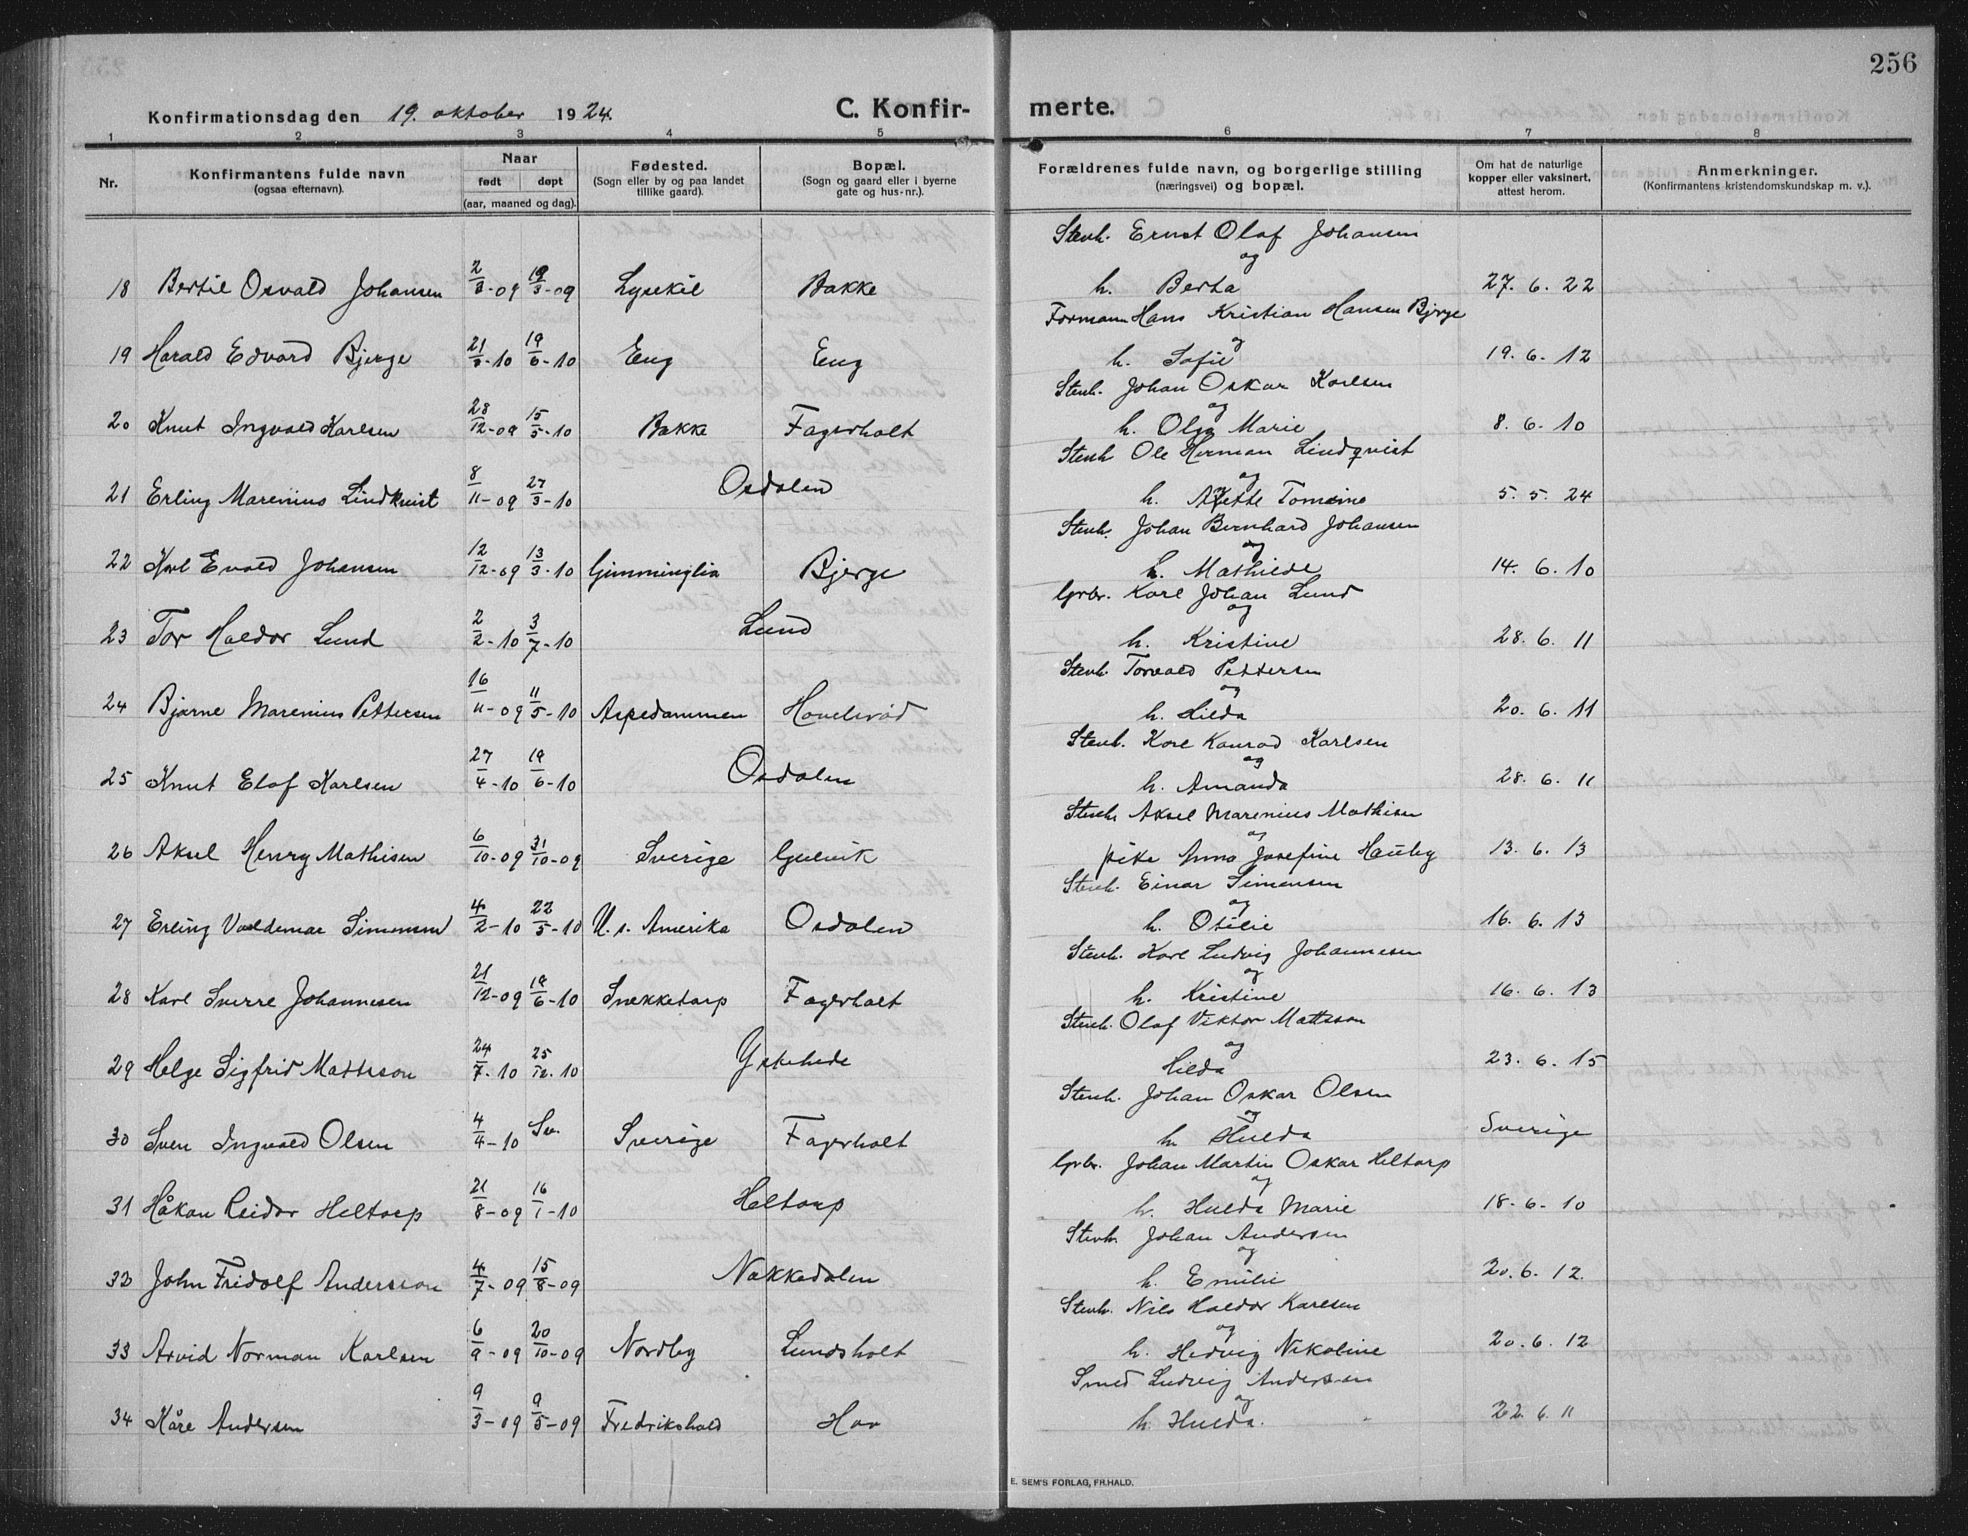 256
Konfirmationsdag den 19. oktober 1924. C. Konfir- merte.
1 2 3 4 5 6 7 8
Nr. Konfirmantens fulde navn (ogsaa efternavn). Naar født døpt (aar, maaned og dag). Fødested. (Sogn eller by og paa landet tillike gaard). Bopæl. (Sogn og gaard eller i byerne gate og hus-nr.). Forældrenes fulde navn, og borgerlige stilling (næringsvei) og bopæl. Om hat de naturlige kopper eller vaksinert, attest herom. Anmerkninger. (Konfirmantens kristendomskundskap m. v.).
Stenh. Ernst Olaf Johansen
og
18 Bertil Osvald Johansen 2/3-09 19/3-09 Lysekil Bakke h. Berta 27. 6. 22
Formann Hans Kristian Hansen Bjerge
og
19 Harald Edvard Bjerge 21/3-10 19/6-10 Eng Eng h. Sofie 19. 6. 12
Stenh. Johan Oskar Karlsen
og
20 Knut Ingvald Karlsen 28/12-09 15/5-10 Bakke Fagerholt h. Olga Marie 8. 6. 10
Stenh Ole Herman Lindqvist
og
21 Erling Marenius Lindkvist 8/11-09 27/3-10 Osdalen h. Anette Tomine 5. 5. 24
Stenh. Johan Bernhard Johansen
og
22 Karl Evald Johansen 12/12-09 13/3-10 Gimminglia Bjerge h. Mathilde 14. 6. 10
Grbr. Karl Johan Lund
og
23 Tor Haldor Lund 2/2-10 3/7-10 Lund h. Kristine 28. 6. 11
Stenh Torvald Pettersen
og
24 Bjarne Marenius Pettersen 16/11-09 11/5-10 Aspedammen Hovelsrød h. Hilda 20. 6. 11
Stenh. Karl Konrad Karlsen
og
25 Knut Elof Karlsen 27/4-10 19/6-10 Osdalen h. Amanda 28. 6. 11
Stenh Aksel Marenius Mathisen
og
26 Aksel Henry Mathisen 6/10-09 31/10-09 Sverige Gulvik pike Anna Josefine Hauby 13. 6. 13
Stenh. Einar Simensen
og
27 Erling Valdemar Simensen 4/2-10 22/5-10 U. s. Amerika Osdalen h. Otilie 16. 6. 13
Stenh. Karl Ludvig Johannesen
og
28 Karl Sverre Johannesen 21/12-09 19/6-10 Snekketorp Fagerholt h. Kristine 16. 6. 13
Stenh. Olaf Viktor Mattsson
og
29 Helge Sigfrid Mattsson 24/7-10 25/12-10 Ystehede Hilda 23. 6. 15
Stenh. Johan Oskar Olsen
og
30 Sven Ingvald Olsen 4/4-10 Sv. Sverige Fagerholt h. Hulda Sverige
Grbr. Johan Martin Oskar Heltorp
og
31 Håkon Reidar Heltorp 21/8-09 16/1-10 Heltorp h. Hulda Marie 18-6-10
Stenh. Johan Andersen
og
32 John Fridolf Andersson 4/7-09 15/8-09 Nakkedalen h. Emilie 20. 6. 12.
Stenh. Nils Haldor Karlsen
og
33 Arvid Norman Karlsen 6/9-09 20/10-09 Nordby Lundsholt h. Hedvig Nikoline 20. 6. 12
Smed Ludvig Andersen
og
34 Kåre Andersen 9/3-09 9/5-09 Fredrikshald Hov h. Hulda. 22. 6. 11
E. SEM'S FORLAG, FR.HALD.